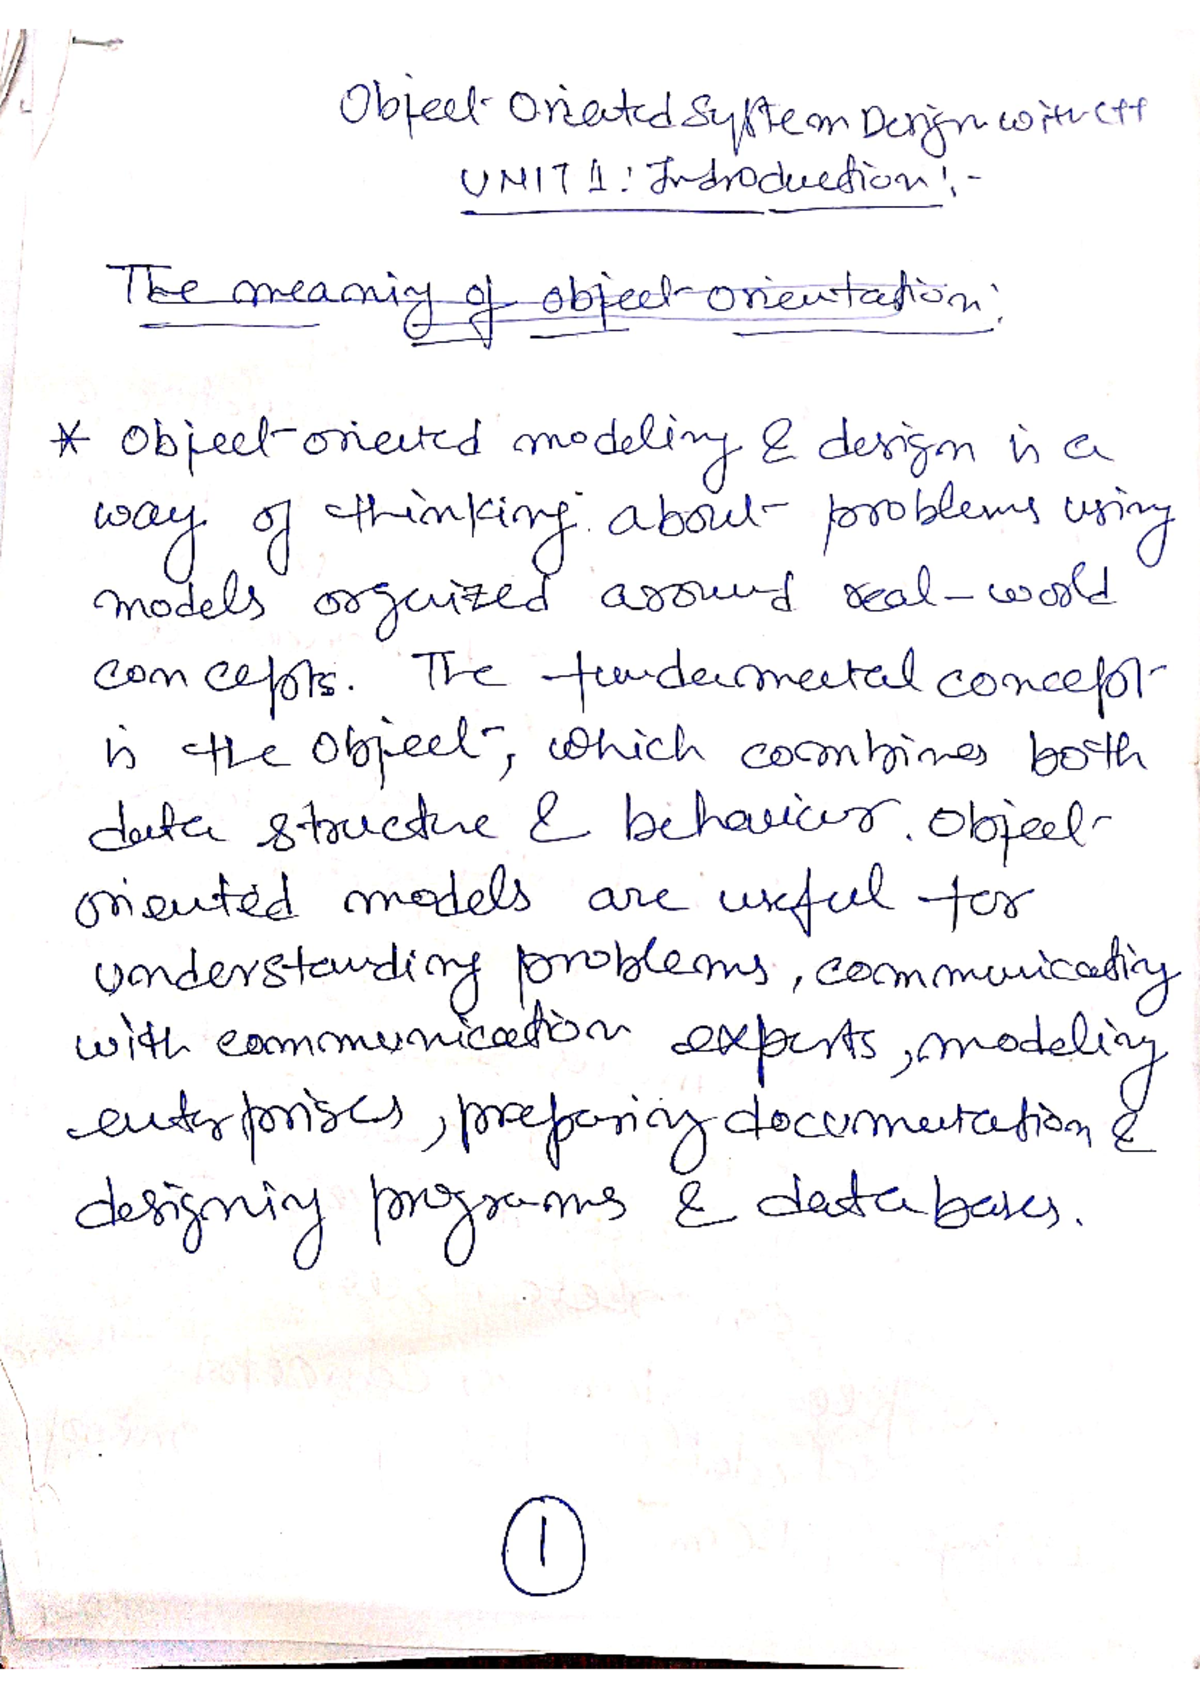 Object Oriented System Design with C++
UNIT 1: Introduction:-
The meaning of object orientation:
* Object-oriented modeling & design is a
way of thinking about problems using
models organized around real-world
concepts. The fundamental concept
is the object, which combines both
data structure & behaviour. Object-
oriented models are useful for
understanding problems, communicating
with communication experts, modeling
enterprises, preparing documentation &
designing programs & databases.
1